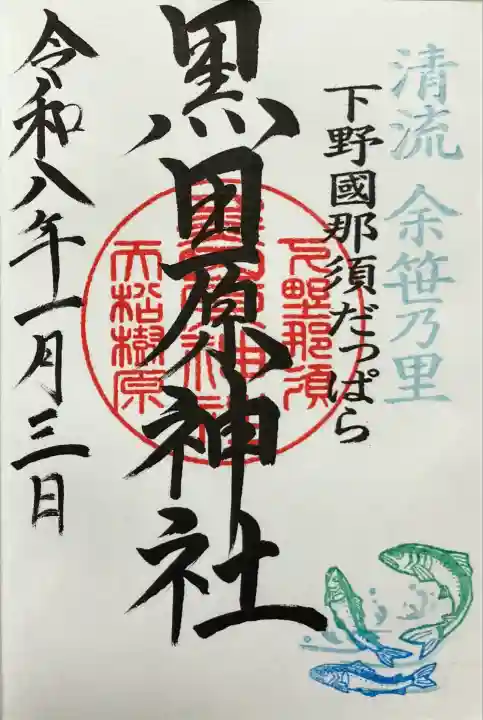 清流 余笹乃里
下野國那須だっぱら
黒田原神社
下野那須
大松樹原
令和八年一月三日